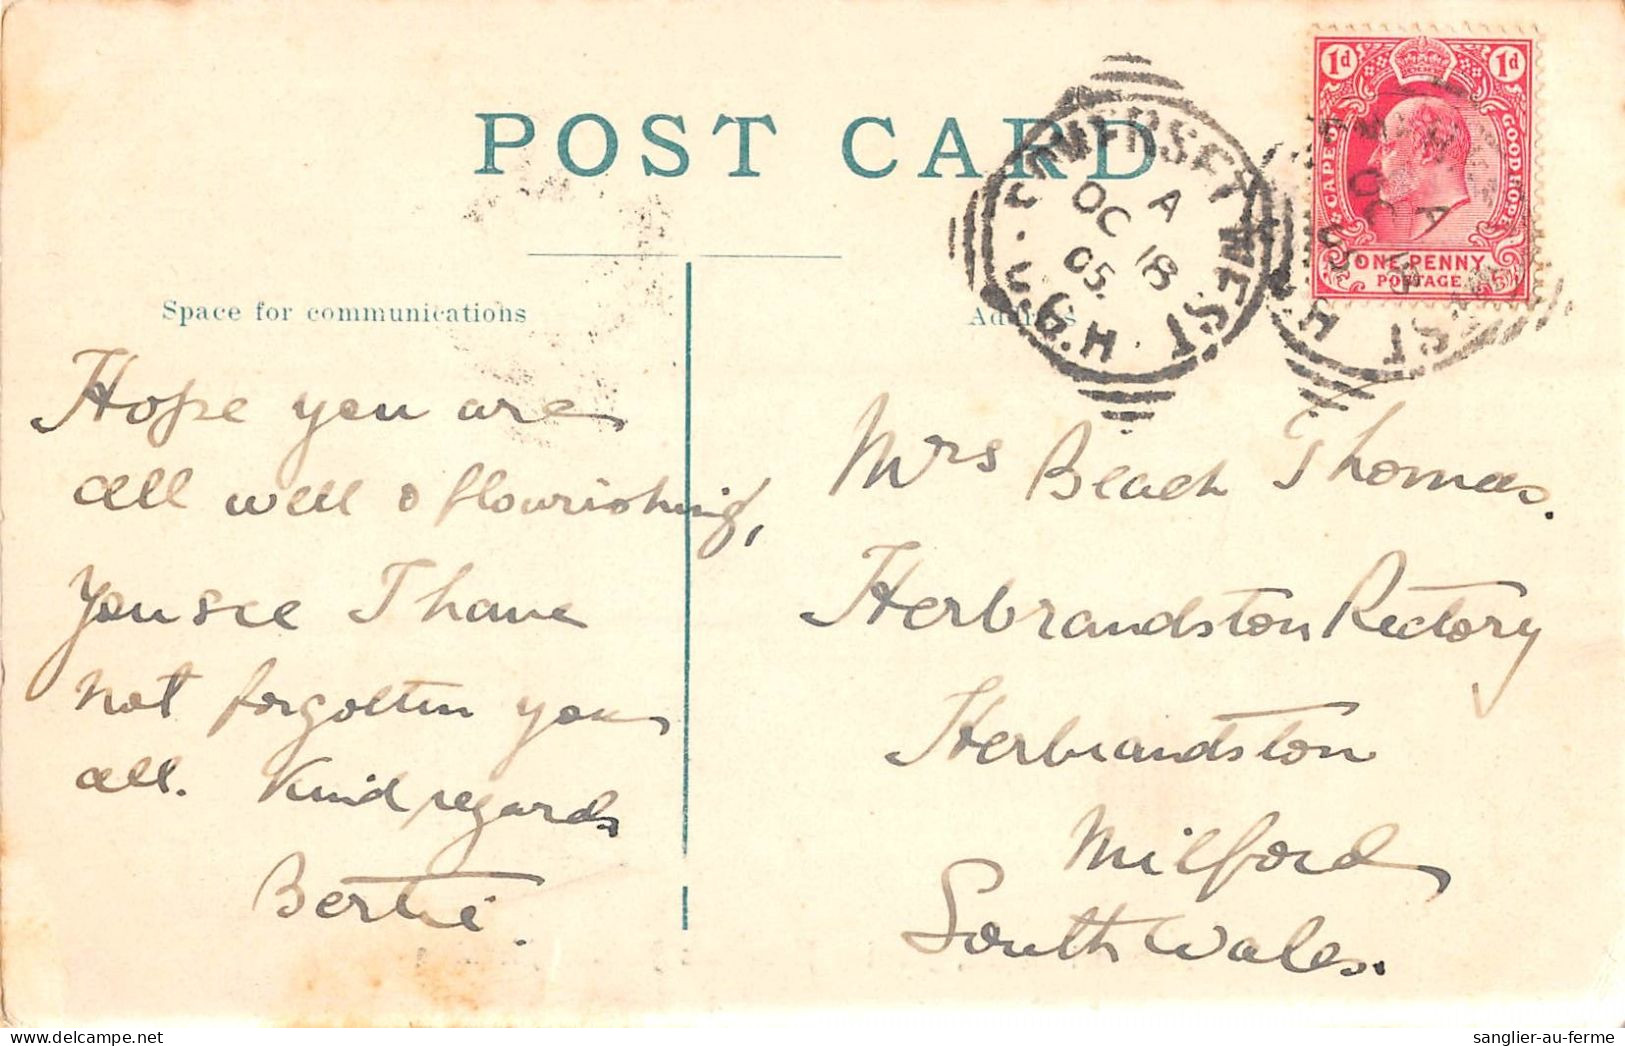 POST CARD
SOMERSET WEST · C.G.H.
A
OC 18
05.
1d 1d
CAPE OF GOOD HOPE
ONE PENNY
POSTAGE
Space for communications
Address
Hope you are
all well & flourishing,
You see I have
not forgotten you
all. Kind regards
Bertie.
Mrs Beach Thomas.
Herbrandston Rectory
Herbrandston
Milford
South Wales.
sanglier-au-ferme